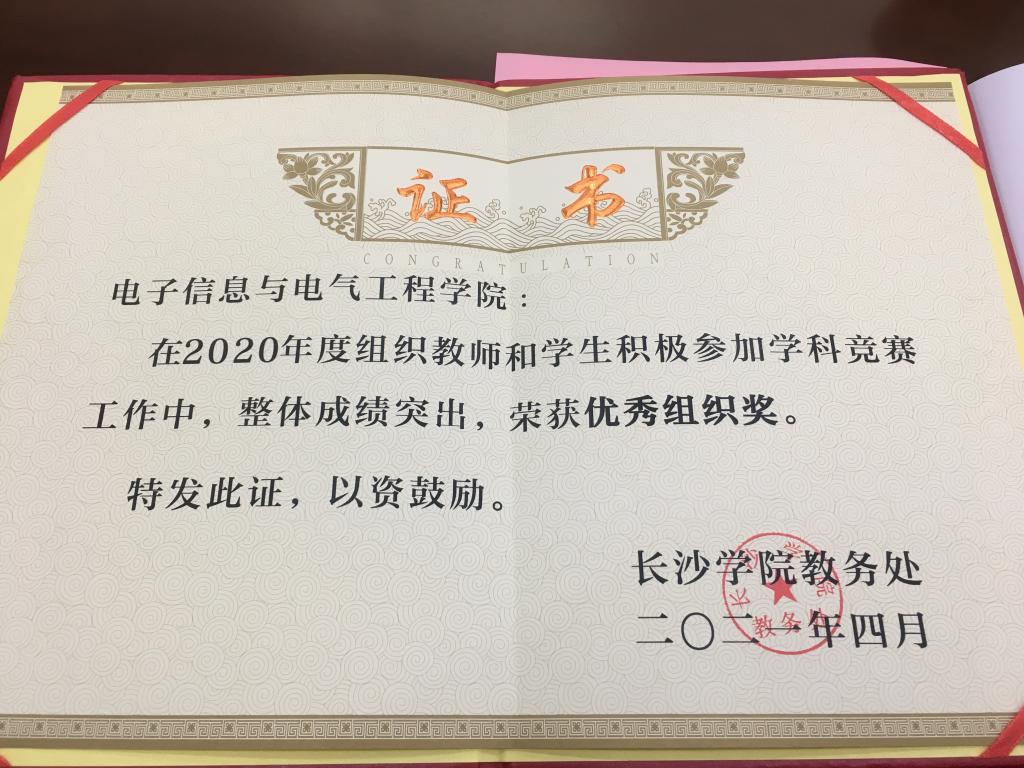 证书
CONGRATULATION
电子信息与电气工程学院：
在2020年度组织教师和学生积极参加学科竞赛
工作中，整体成绩突出，荣获优秀组织奖。
特发此证，以资鼓励。
长沙学院教务处
二〇二一年四月
长沙学院
教务处